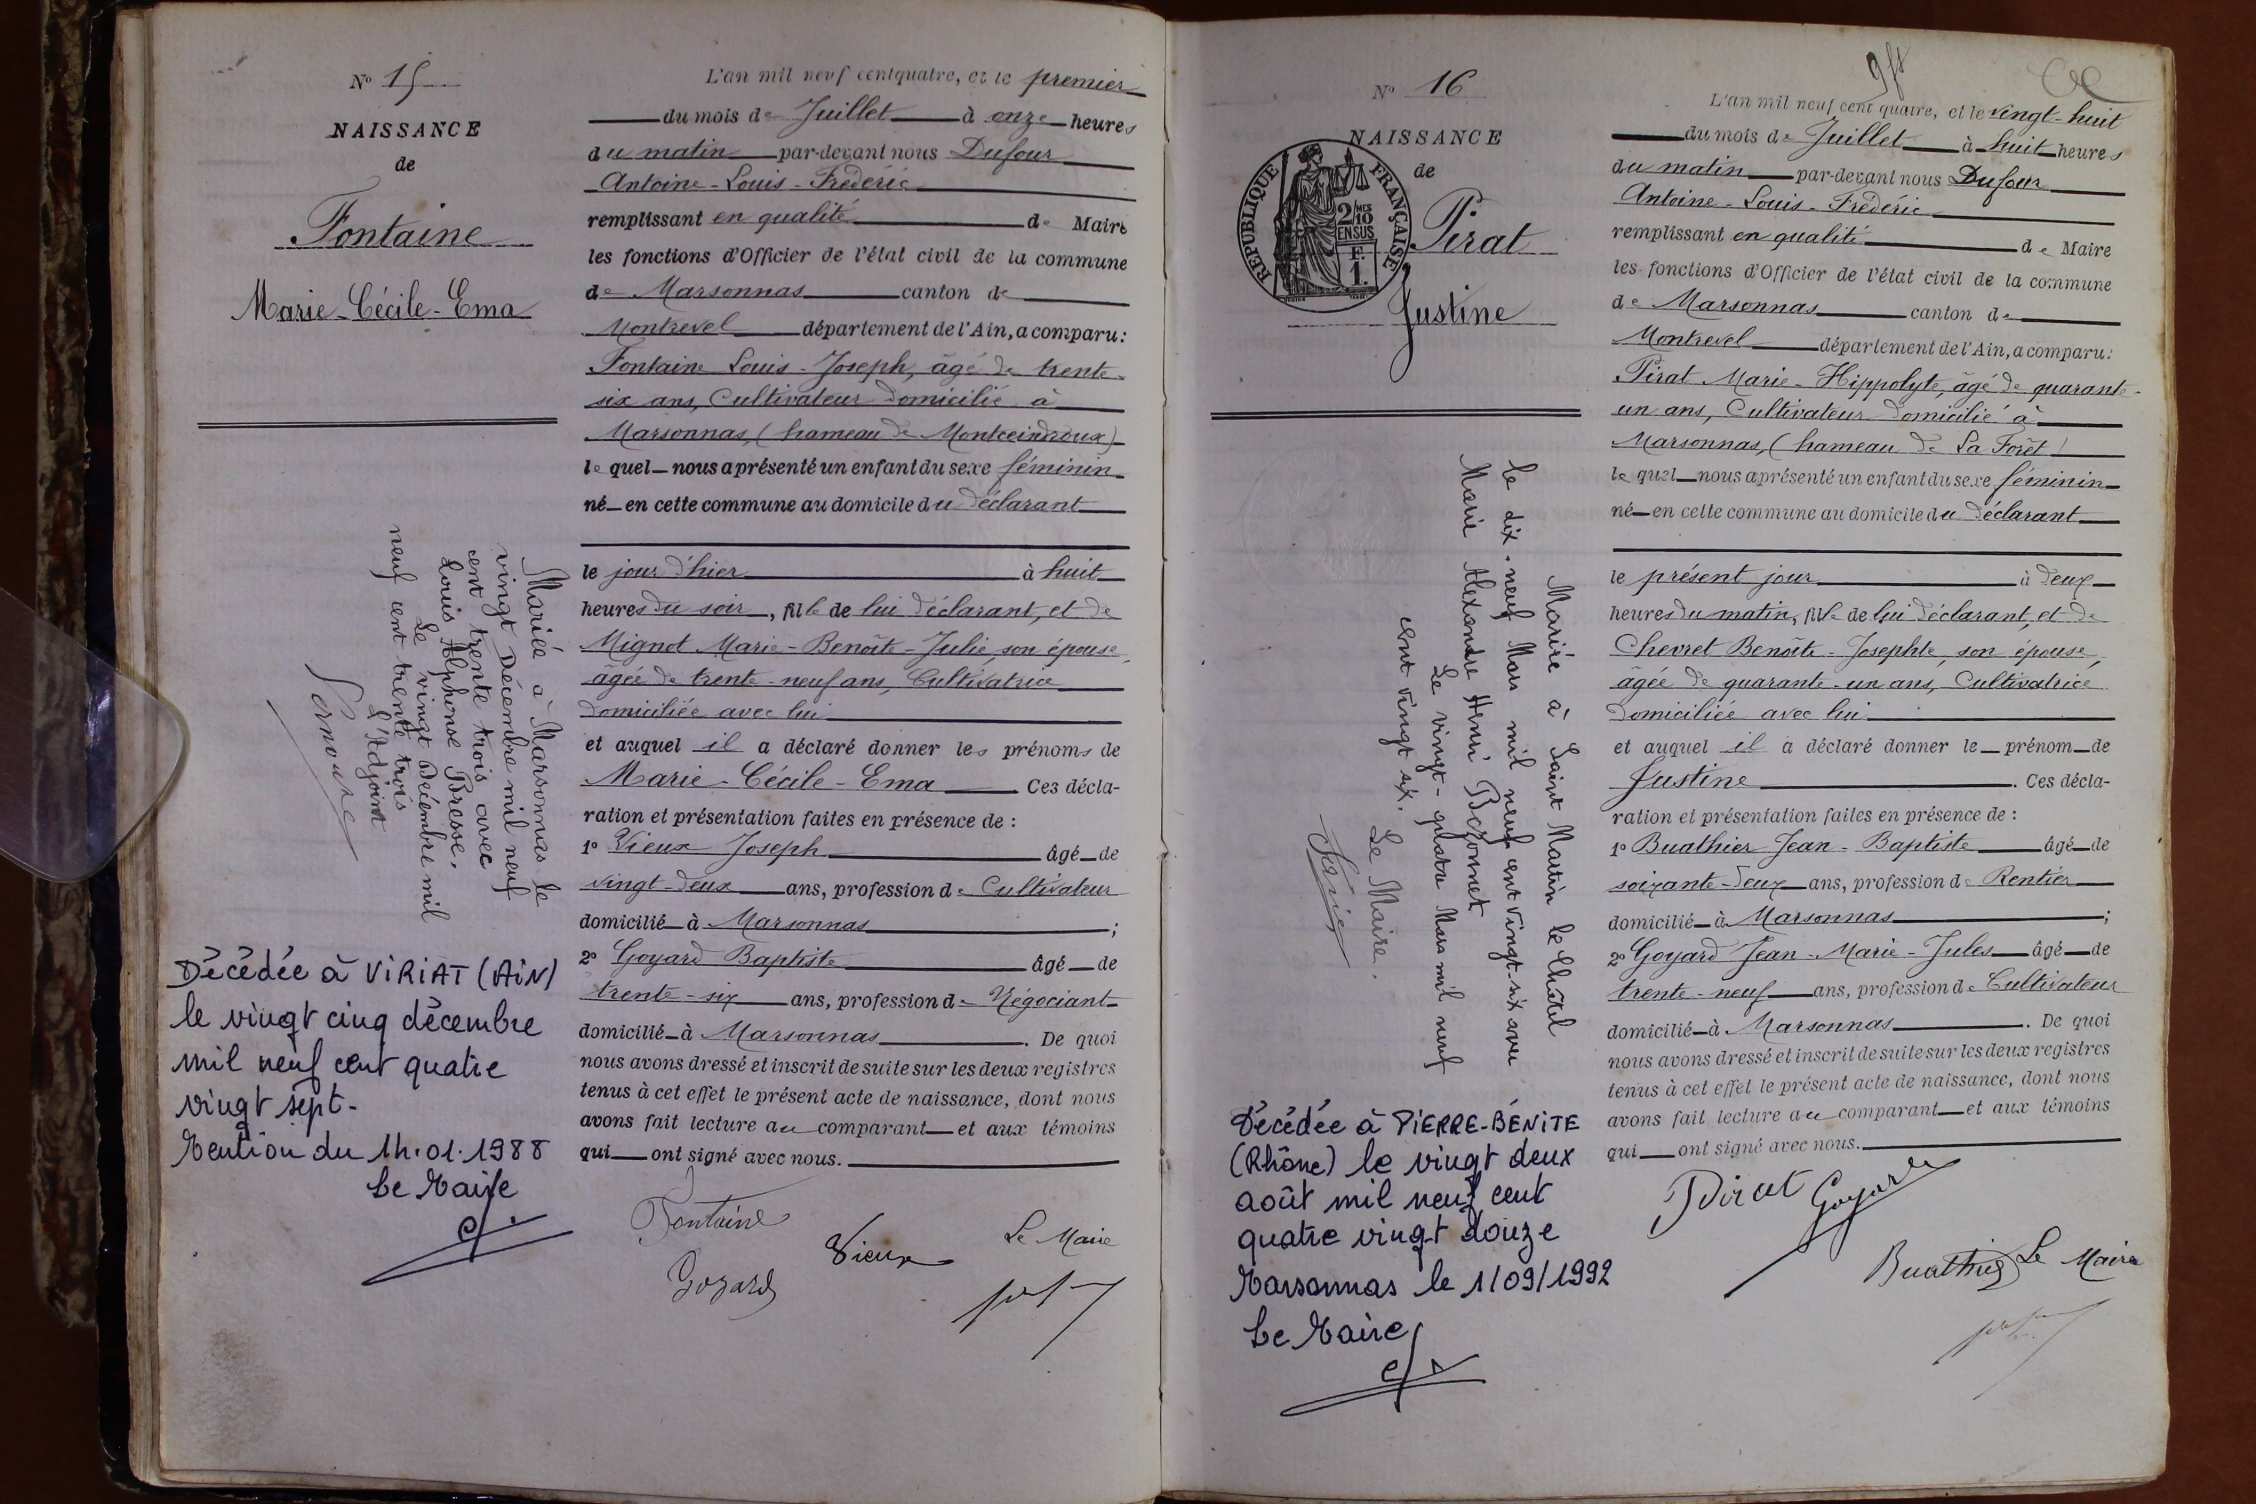 N° 15
NAISSANCE
de
Fontaine
Marie-Cécile-Ema
Mariée à Marsonnas le
vingt Décembre mil neuf
cent trente trois avec
Louis Alphonse Bresse.
Le vingt Décembre mil
neuf cent trente trois
L'Adjoint
Décédée à VIRIAT (AIN)
le vingt cinq décembre
mil neuf cent quatre
vingt sept-
Mention du 14.01.1988
Le Maire
L'an mil neuf cent quatre, et le premier
du mois de Juillet à onze heures
du matin par-devant nous Dufour
Antoine-Louis-Frédéric
remplissant en qualité de Maire
les fonctions d'Officier de l'état civil de la commune
de Marsonnas canton de
Montrevel département de l'Ain, a comparu:
Fontaine Louis-Joseph, âgé de trente-
six ans, Cultivateur domicilié à
Marsonnas, (hameau de Montceindroux)
lequel nous a présenté un enfant du sexe féminin
né en cette commune au domicile du déclarant
le jour d'hier à huit
heures du soir, fille de lui déclarant, et de
Mignot Marie-Benoîte-Julie, son épouse,
âgée de trente-neuf ans, Cultivatrice
domiciliée avec lui
et auquel il a déclaré donner les prénoms de
Marie-Cécile-Ema. Ces décla-
ration et présentation faites en présence de :
1° Vieux Joseph âgé de
vingt-deux ans, profession de Cultivateur
domicilié à Marsonnas ;
2° Goyard Baptiste âgé de
trente-six ans, profession de Négociant
domicilié à Marsonnas. De quoi
nous avons dressé et inscrit de suite sur les deux registres
tenus à cet effet le présent acte de naissance, dont nous
avons fait lecture au comparant et aux témoins
qui ont signé avec nous.
Fontaine
Vieux
Le Maire
Goyard
N° 16
NAISSANCE
de
RÉPUBLIQUE FRANÇAISE
2/10 MES
EN SUS
F.
1.
Pirat
Justine
Mariée à Saint Martin le Châtel
le dix-neuf Mars mil neuf cent vingt-six avec
Marie Alexandre Henri Bozonnet
Le vingt-quatre Mars mil neuf
cent vingt six.
Le Maire.
Décédée à PIERRE-BÉNITE
(Rhône) le vingt deux
août mil neuf cent
quatre vingt douze
Marsonnas le 1/09/1992
Le Maire
L'an mil neuf cent quatre, et le vingt-huit
du mois de Juillet à huit heures
du matin par-devant nous Dufour
Antoine-Louis-Frédéric
remplissant en qualité de Maire
les fonctions d'Officier de l'état civil de la commune
de Marsonnas canton de
Montrevel département de l'Ain, a comparu:
Pirat Marie-Hippolyte, âgé de quarante-
un ans, Cultivateur domicilié à
Marsonnas, (hameau de La Forêt)
lequel nous a présenté un enfant du sexe féminin
né en cette commune au domicile du déclarant
le présent jour à deux
heures du matin, fille de lui déclarant, et de
Chevret Benoîte-Josephte, son épouse,
âgée de quarante-un ans, Cultivatrice
domiciliée avec lui
et auquel il a déclaré donner le prénom de
Justine. Ces décla-
ration et présentation faites en présence de :
1° Buathier Jean-Baptiste âgé de
soixante-deux ans, profession de Rentier
domicilié à Marsonnas ;
2° Goyard Jean-Marie-Jules âgé de
trente-neuf ans, profession de Cultivateur
domicilié à Marsonnas. De quoi
nous avons dressé et inscrit de suite sur les deux registres
tenus à cet effet le présent acte de naissance, dont nous
avons fait lecture au comparant et aux témoins
qui ont signé avec nous.
Pirat
Goyard
Buathier
Le Maire